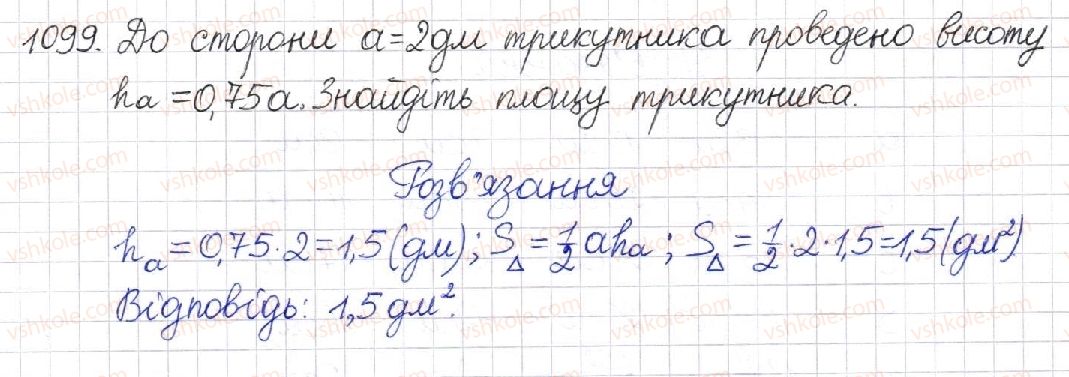 1099. До сторони a=2дм трикутника проведено висоту
hₐ=0,75a. Знайдіть площу трикутника.
Розв'язання
hₐ=0,75·2=1,5(дм); S△=1/2ahₐ; S△=1/2·2·1,5=1,5(дм²)
Відповідь: 1,5дм².